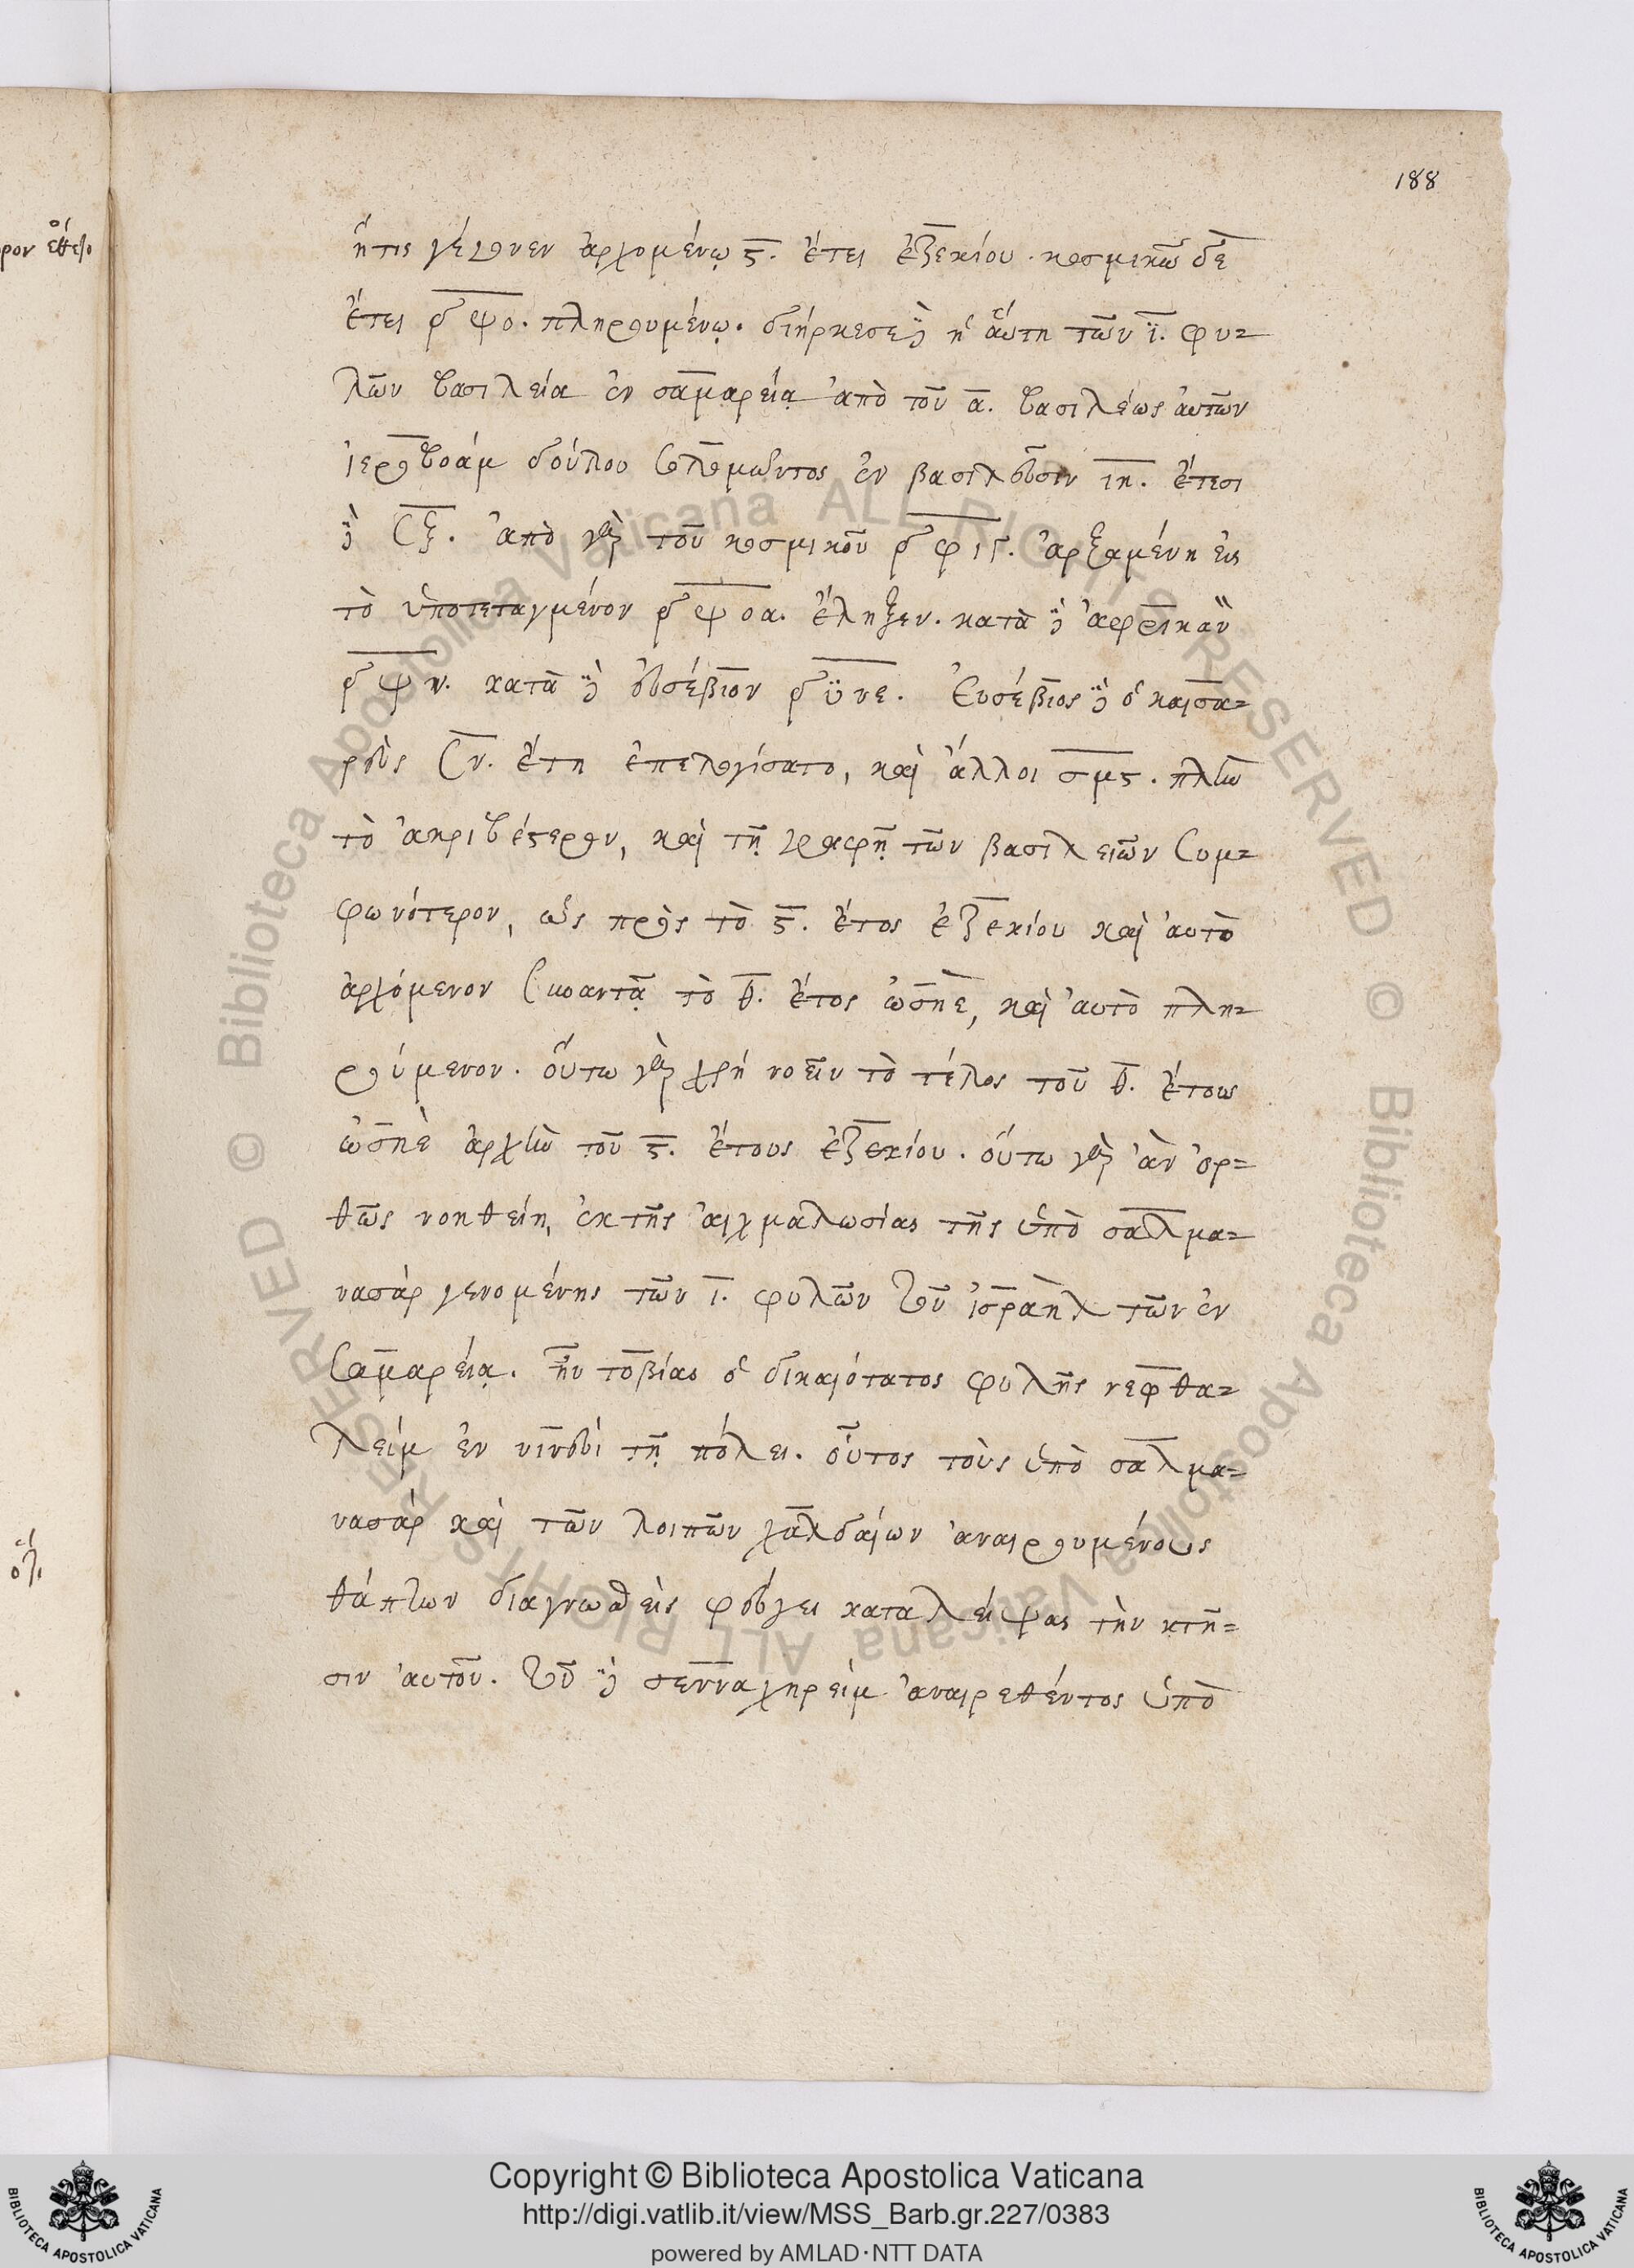 188
ἥτις γέγονεν ἀρχομένῳ ϛ. ἔτει ἐζεκίου. κοσμικῶ δὲ
ἔτει ͵δψο. πληρουμένῳ. διήρκεσε δὲ ἡ ἅυτη τῶν ϊ. φυ=
λῶν βασιλεία ἐν σαμαρείᾳ ἀπὸ τοῦ α. βασιλέως ἀυτῶν
ἱεροβοάμ δούλου σολομῶντος ἐν βασιλεῦσιν ιη. ἔτεσι
δὲ σξ. ἀπὸ γὰρ τοῦ κοσμικοῦ ͵δφιγ. ἀρξαμένη εἰς
τὸ ὑποτεταγμένον ͵δψοα. ἔληξεν. κατὰ δὲ ἀφρικανὸν
͵δψν. κατὰ δὲ ἐυσέβιον ͵δϋνε. Ἐυσέβιος δὲ ὁ καισα=
ρεὺς σν. ἔτη ἐπελογίσατο, καὶ ἄλλοι σμϛ. πλὴν
τὸ ἀκριβέστερον, καὶ τῇ γραφῇ τῶν βασιλειῶν συμ=
φωνότερον, ὡς πρὸς τὸ ϛ. ἔτος ἐζεκίου καὶ ἀυτὸ
ἀρχόμενον σκοαντᾷ τὸ θ. ἔτος ὠσηὲ, καὶ ἀυτὸ πλη=
ρούμενον. οὕτω γὰρ χρή νοεῖν τὸ τέλος τοῦ θ. ἔτους
ὠσηὲ ἀρχὴν τοῦ ϛ. ἔτους ἐζεκίου. ὅυτω γὰρ ἀν ὀρ=
θῶς νοηθείη, ἐκ τῆς ἀιχμαλωσίας τῆς ὑπὸ σαλμα=
νασὰρ γενομένης τῶν ι. φυλῶν τοῦ ἰσραὴλ τῶν ἐν
σαμαρείᾳ. ἦν τοβίας ὁ δικαιότατος φυλῆς νεφθα=
λείμ ἐν νινευὶ τῇ πόλει. οὗτος τοὺς ὑπὸ σαλμα=
νασὰρ καὶ τῶν λοιπῶν χαλδαίων ἀναιρουμένους
θάπτων διαγνωσθεὶς φέυγει καταλείψας τὴν κτῆ=
σιν ἀυτοῦ. τοῦ δὲ σενναχηρεὶμ ἀναιρεθέντος ὑπὸ
Copyright © Biblioteca Apostolica Vaticana
http://digi.vatlib.it/view/MSS_Barb.gr.227/0383
powered by AMLAD·NTT DATA